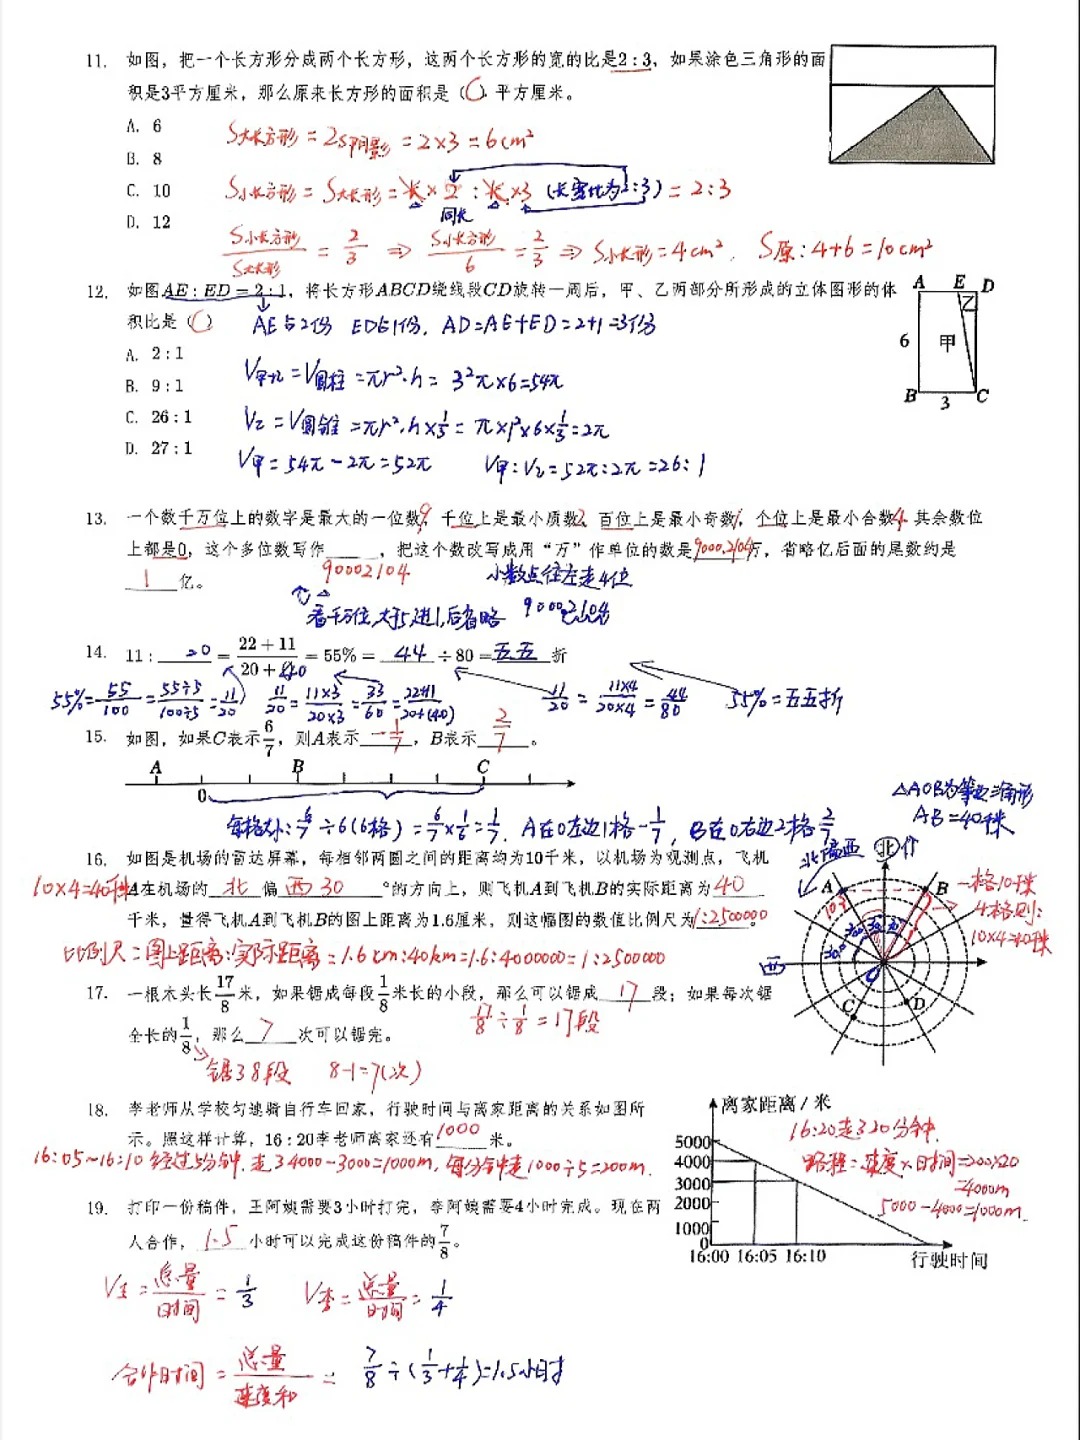 11. 如图，把一个长方形分成两个长方形，这两个长方形的宽的比是2:3，如果涂色三角形的面
积是3平方厘米，那么原来长方形的面积是（C）平方厘米。
A. 6
S大长方形=2S阴影=2×3=6cm²
B. 8
C. 10
S小长方形:S大长形=长×2:长×3 (长宽比为2:3)=2:3
同长
D. 12
S小长方形/S大长形=2/3⇒S小长方形/6=2/3⇒S小长形=4cm². S原:4+6=10cm²
12. 如图AE:ED=2:1，将长方形ABCD绕线段CD旋转一周后，甲、乙两部分所形成的立体图形的体
积比是（C）
AE占2份 ED占1份. AD=AE+ED=2+1=3份
A. 2:1
V甲+乙=V圆柱=πr²·h=3²π×6=54π
B. 9:1
C. 26:1
V乙=V圆锥=πr²·h×1/3=π×1²×6×1/3=2π
D. 27:1
V甲=54π-2π=52π V甲:V乙=52π:2π=26:1
A E D
乙
6 甲
B 3 C
13. 一个数千万位上的数字是最大的一位数9，千位上是最小质数2，百位上是最小奇数1，个位上是最小合数4，其余数位
上都是0，这个多位数写作____，把这个数改写成用“万”作单位的数是9000.2104万，省略亿后面的尾数约是
90002104 小数点往左走4位
1 亿。
看千万位,大于5,进1,后省略 90002104
14. 11:20=22+11/20+40=55%=44÷80=五五折
55%=55/100=55÷5/100÷5=11/20 11/20=11×3/20×3=33/60=22+11/20+(40) 11/20=11×4/20×4=44/80 55%=五五折
15. 如图，如果C表示6/7，则A表示-1/7，B表示2/7。
A B C
0
每格为:6/7÷6(6格)=6/7×1/6=1/7. A在0左边1格-1/7, B在0右边2格2/7
△AOB为等边三角形
AB=40千米
16. 如图是机场的雷达屏幕，每相邻两圆之间的距离均为10千米，以机场为观测点，飞机
10×4=40千米
A在机场的 北 偏 西30 °的方向上，则飞机A到飞机B的实际距离为40
千米，量得飞机A到飞机B的图上距离为1.6厘米，则这幅图的数值比例尺为1:2500000。
比例尺=图上距离:实际距离=1.6cm:40km=1.6:4000000=1:2500000
北偏西 北
A B
一格10千米
4格则:
10×4=40千米
西 O
C D
17. 一根木头长17/8米，如果锯成每段1/8米长的小段，那么可以锯成 17 段；如果每次锯
17/8÷1/8=17段
全长的1/8，那么 7 次可以锯完。
锯了8段 8-1=7(次)
18. 李老师从学校匀速骑自行车回家，行驶时间与离家距离的关系如图所
示。照这样计算，16:20李老师离家还有1000米。
16:05~16:10经过5分钟. 走了4000-3000=1000m, 每分钟走1000÷5=200m.
离家距离/米
5000
4000
3000
2000
1000
0
16:00 16:05 16:10
行驶时间
16:20走了20分钟.
路程=速度×时间=200×20
=4000m
5000-4000=1000m.
19. 打印一份稿件，王阿姨需要3小时打完，李阿姨需要4小时完成。现在两
人合作，1.5小时可以完成这份稿件的7/8。
V王=总量/时间=1/3 V李=总量/时间=1/4
合作时间=总量/速度和=7/8÷(1/3+1/4)=1.5小时